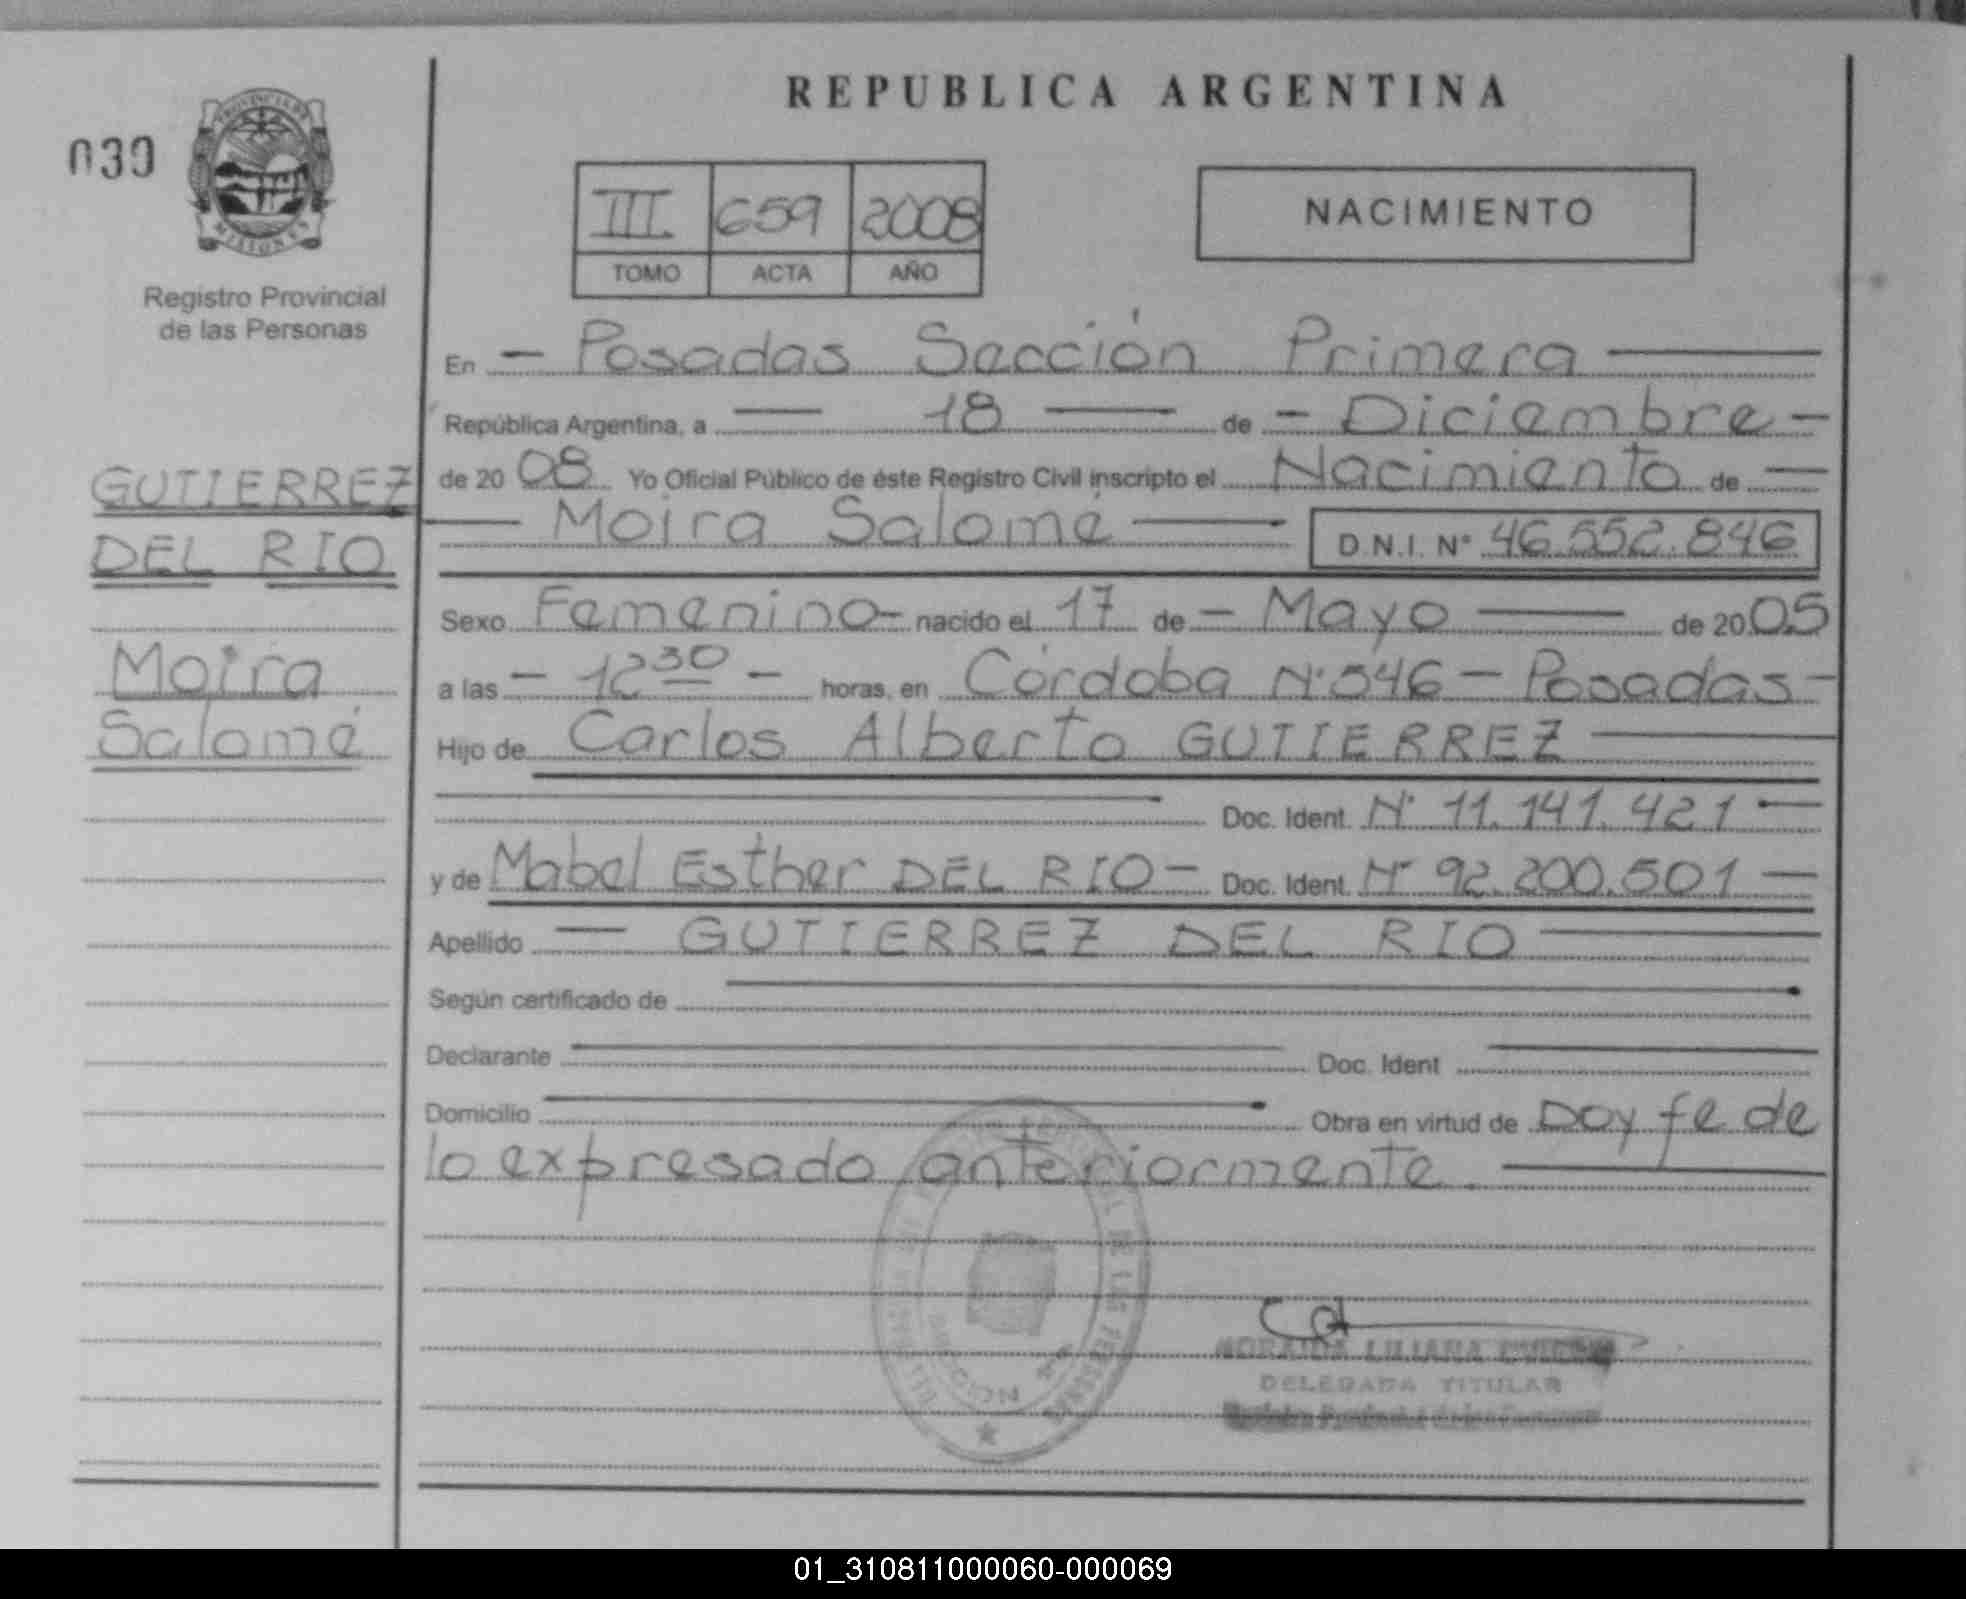 REPUBLICA ARGENTINA
039
PROVINCIA DE
MISIONES
Registro Provincial
de las Personas
III 659 2008
TOMO ACTA AÑO
NACIMIENTO
En - Posadas Sección Primera
República Argentina, a 18 de - Diciembre -
de 20 08 Yo Oficial Público de éste Registro Civil inscripto el Nacimiento de
Moira Salomé D.N.I. N° 46.552.846
GUTIERREZ
DEL RIO
Moira
Salomé
Sexo Femenino - nacido el 17 de - Mayo de 20 05
a las - 12 30 - horas, en Córdoba N° 546 - Posadas -
Hijo de Carlos Alberto GUTIERREZ
Doc. Ident. N° 11.141.421
y de Mabel Esther DEL RIO - Doc. Ident. N° 92.200.501
Apellido GUTIERREZ DEL RIO
Según certificado de
Declarante Doc. Ident
Domicilio Obra en virtud de Doy fe de
lo expresado anteriormente.
LILIANA
DELEGADA TITULAR
01_310811000060-000069